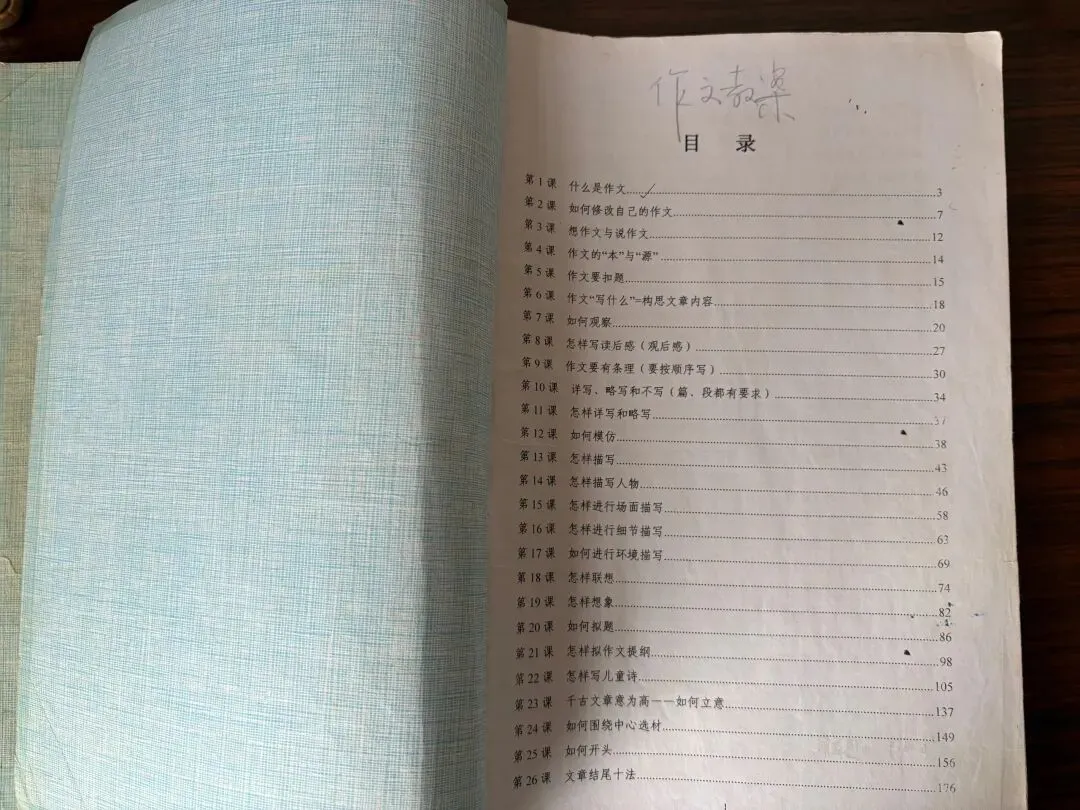 作文教案
目 录
第 1 课 什么是作文 3
第 2 课 如何修改自己的作文 7
第 3 课 想作文与说作文 12
第 4 课 作文的“本”与“源” 14
第 5 课 作文要扣题 15
第 6 课 作文“写什么”=构思文章内容 18
第 7 课 如何观察 20
第 8 课 怎样写读后感（观后感） 27
第 9 课 作文要有条理（要按顺序写） 30
第 10 课 详写、略写和不写（篇、段都有要求） 34
第 11 课 怎样详写和略写 37
第 12 课 如何模仿 38
第 13 课 怎样描写 43
第 14 课 怎样描写人物 46
第 15 课 怎样进行场面描写 58
第 16 课 怎样进行细节描写 63
第 17 课 如何进行环境描写 69
第 18 课 怎样联想 74
第 19 课 怎样想象 82
第 20 课 如何拟题 86
第 21 课 怎样拟作文提纲 98
第 22 课 怎样写儿童诗 105
第 23 课 千古文章意为高——如何立意 137
第 24 课 如何围绕中心选材 149
第 25 课 如何开头 156
第 26 课 文章结尾十法 176
1